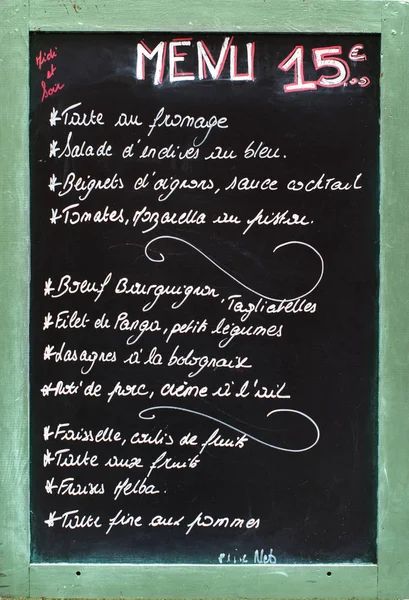 Midi
et
Soir
MENU 15€
*Tarte au fromage
*Salade d'endives au bleu.
*Beignets d'oignons, sauce cocktail
*Tomates, Mozarella au pistou.
*Boeuf Bourguignon, Tagliatelles
*Filet de Panga, petits légumes
*Lasagnes à la bolognaise
*Roti de porc, crème à l'ail
*Faisselle, coulis de fruits
*Tarte aux fruits
*Fraises Melba.
*Tarte fine aux pommes
prix Nets